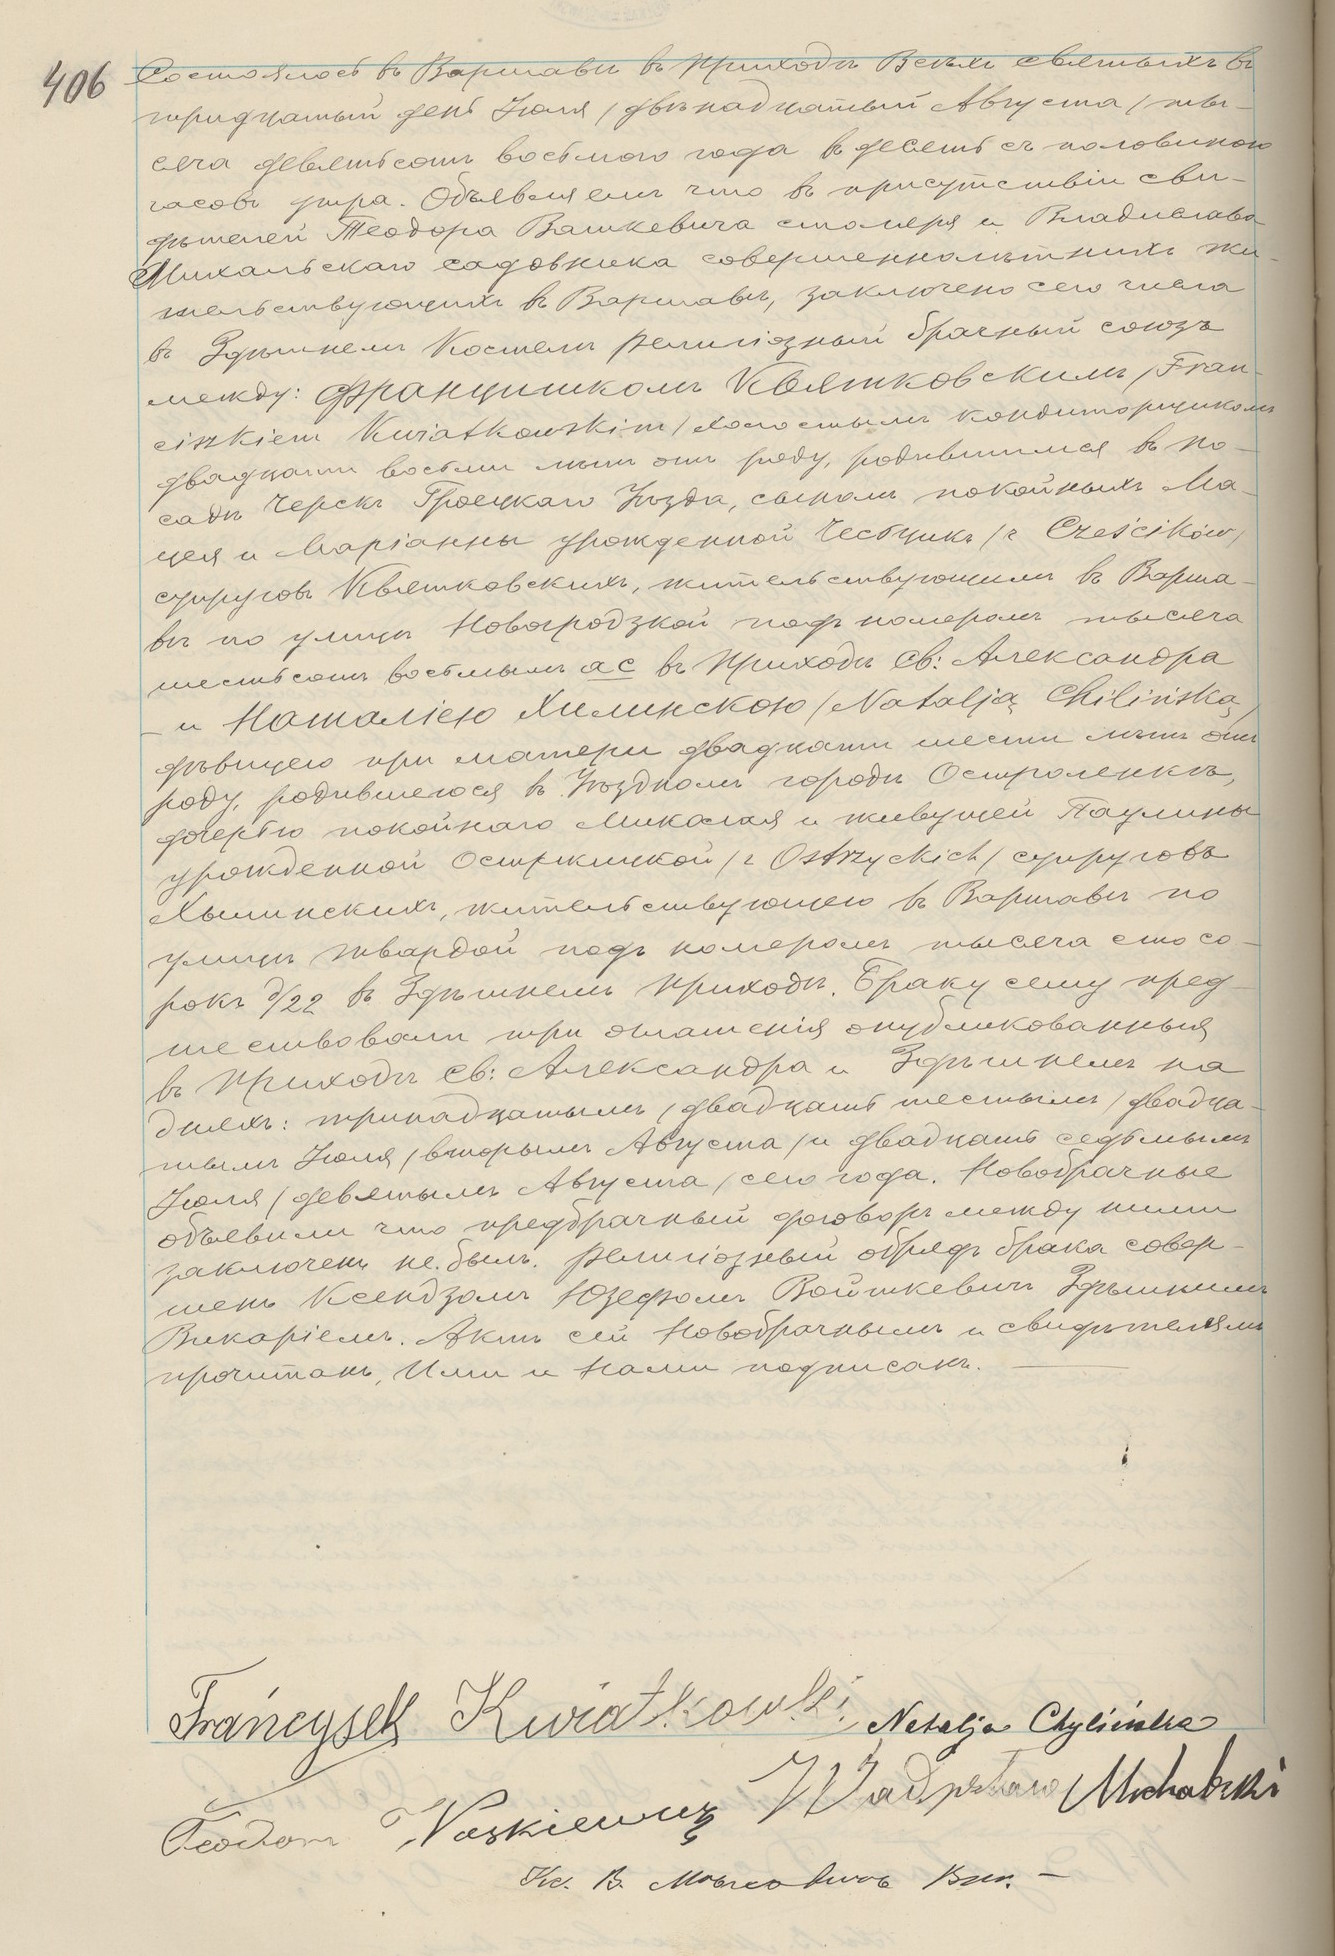 406
Состоялось въ Варшавѣ въ приходѣ Всѣхъ святыхъ въ
тридцатый день Іюля / двѣнадцатый Августа / ты-
сяча девятьсотъ восьмого года въ десять съ половиною
часовъ утра. Объявляемъ что въ присутствіи сви-
дѣтелей Теодора Вашкевича столяра и Владислава
Михальскаго садовника совершеннолѣтнихъ жи-
тельствующихъ въ Варшавѣ, заключено сего числа
въ Здѣшнемъ Костелѣ религіозный брачный союзъ
между: Францишкомъ Квятковскимъ / Fran-
ciszkiem Kwiatkowskim / холостымъ кондиторщикомъ
двадцати восьми лѣтъ отъ роду, родившимся въ по-
садѣ Черскъ Гроецкаго Уѣзда, сыномъ покойныхъ Ма-
цея и Маріанны урожденной Честцикъ / z Cześcików /
супруговъ Квятковскихъ, жительствующимъ въ Варша-
вѣ по улицѣ Новогродзкой подъ номеромъ тысяча
шестьсотъ восьмымъ ас въ приходѣ Св: Александра
– и Наталіею Хилинскою / Natalją Chilińską /
дѣвицею при матери двадцати шести лѣтъ отъ
роду, родившеюся въ Уѣздномъ городѣ Остроленкѣ,
дочерью покойнаго Миколая и живущей Паулины
урожденной Остржицкой / z Ostrzyckich / супруговъ
Хилинскихъ, жительствующею въ Варшавѣ по
улицѣ твардой подъ номеромъ тысяча сто со-
рокъ д/22 въ Здѣшнемъ приходѣ. Браку сему пред-
шествовали три оглашенія опубликованныя
въ приходѣ Св: Александра и Здѣшнемъ на
дняхъ: тринадцатымъ / двадцать шестымъ / двадца-
тымъ Іюля / вторымъ Августа / и двадцать седьмымъ
Іюля / девятымъ Августа / сего года. Новобрачные
объявили что предбрачный договоръ между ними
заключенъ не былъ. Религіозный обрядъ брака совер-
шенъ Ксендзомъ Юзефомъ Войткевичъ Здѣшнимъ
Викаріемъ. Актъ сей Новобрачнымъ и свидѣтелямъ
прочитанъ, Ими и Нами подписанъ.
Francysek Kwiatkowski Natalja Chylińska
Teodor Waszkiewicz Władysław Michalski
Кс. В.